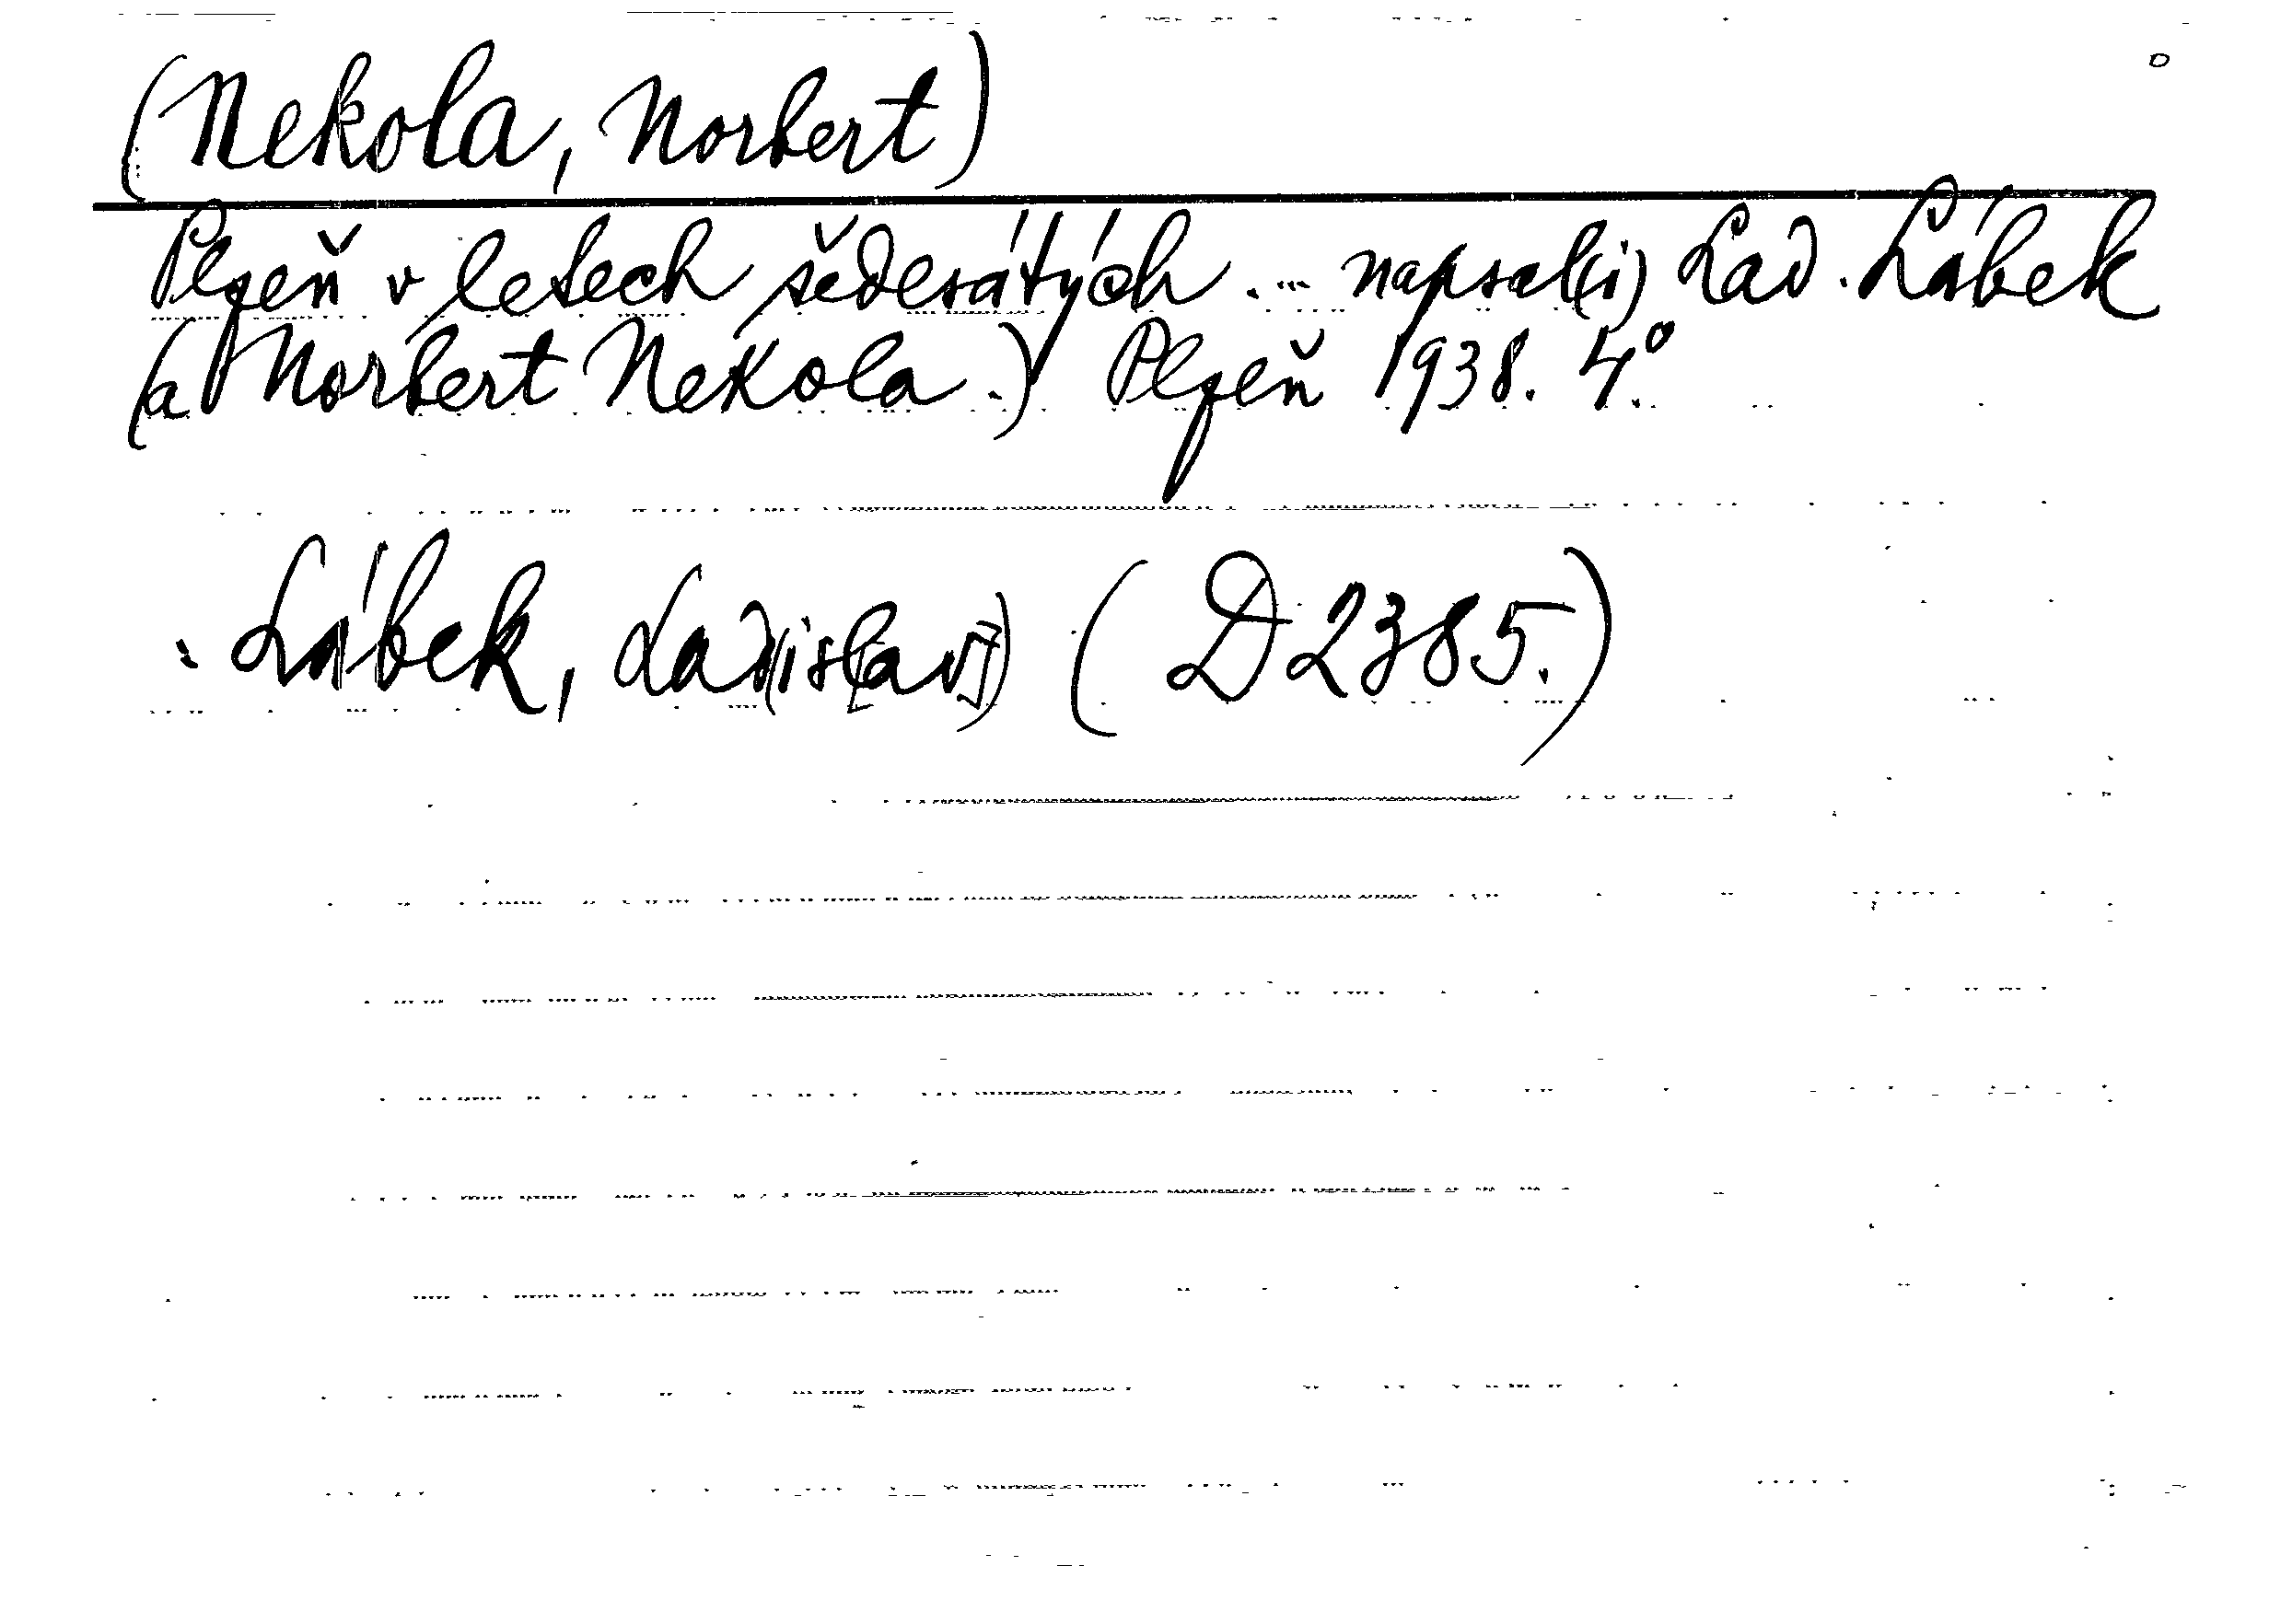 (Nekola, Norbert)
Plzeň v letech šedesátých ... napsal(i) Lad. Lábek
(a Norbert Nekola.) Plzeň 1938. 4°.
: Lábek, Lad(islav) (D2385.)